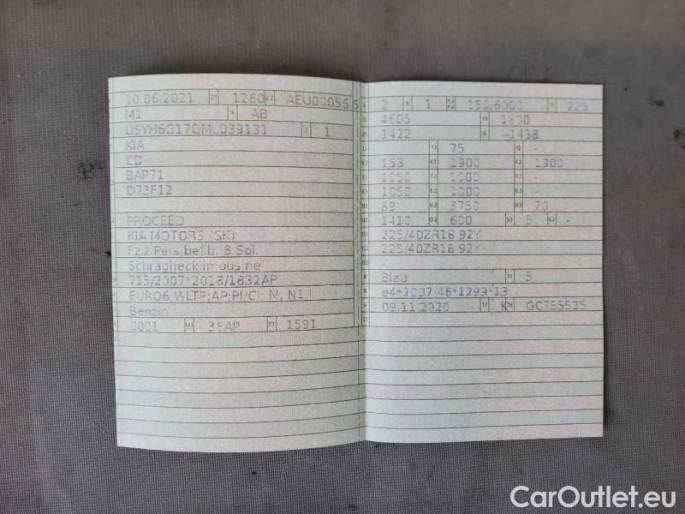 10.06.2021 1260 AEU00056 5
M1 AB
U5YH6G17GML039131 1
KIA
CD
BAP71
D73F12
PROCEED
KIA MOTORS (SK)
Fz.z.Pers.bef.b. 8 Spl.
Schräghecklimousine
715/2007*2018/1832AP
EURO6 WLTP;AP;PI/CI; M, N1 I
Benzin
0001 36AP 1591
2 1 150/6000 225
4605 1800
1422 -1438
75 -
1900 1900
1050 1000 -
1000 -
3750 70
1410 600 5 -
225/40ZR18 92Y
225/40ZR18 92Y
-
Blau 5
e4*2007/46*1299*13
09.11.2020 K GC755525
CarOutlet.eu